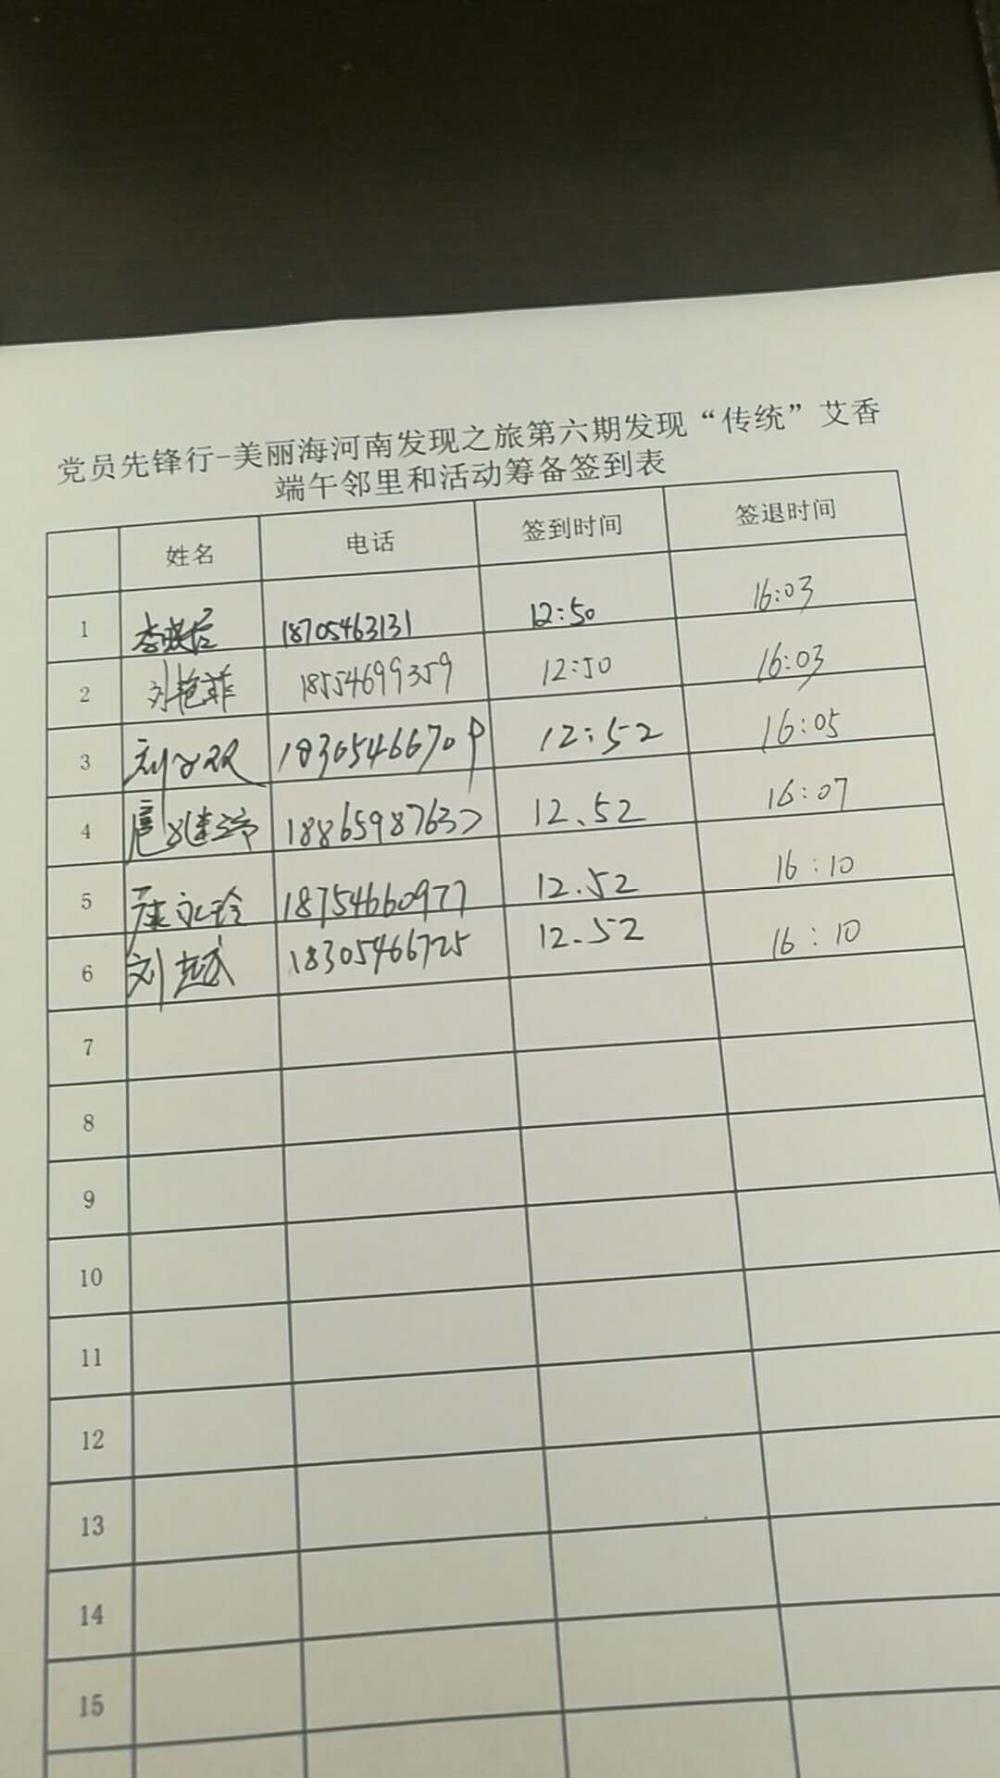 党员先锋行-美丽海河南发现之旅第六期发现“传统”艾香
端午邻里和活动筹备签到表
姓名 电话 签到时间 签退时间
1 18705463131 12:50 16:03
2 刘艳菲 18554699359 12:50 16:03
3 12:52 16:05
4 12.52 16:07
5 18754660977 12.52 16:10
6 刘 18305466725 12.52 16:10
7
8
9
10
11
12
13
14
15